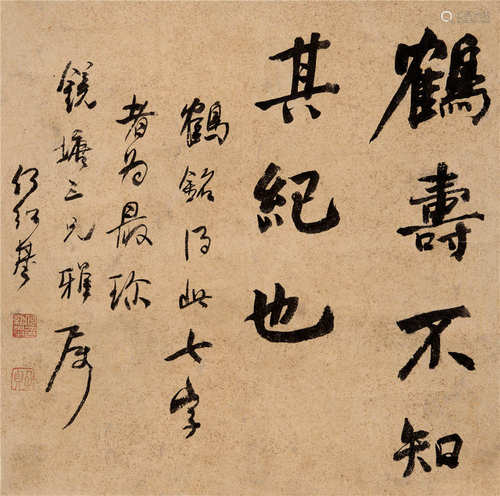 鶴壽不知
其紀也
鶴銘得此七字
者為最珎
鏡塘三兄雅屬
何紹基